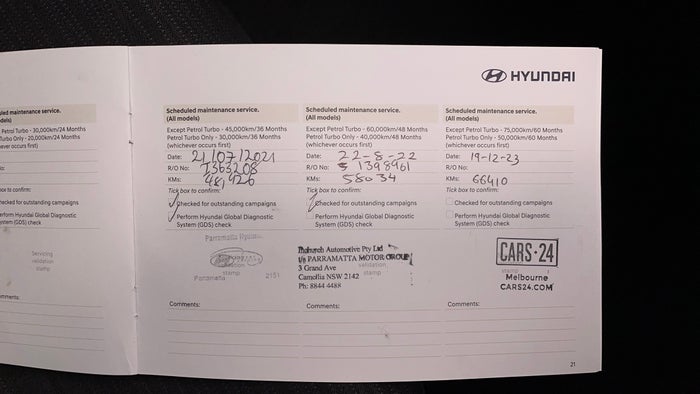 HYUNDAI
uled maintenance service.
dels)
Petrol Turbo - 30,000km/24 Months
Turbo Only - 20,000km/24 Months
ever occurs first)
box to confirm:
hecked for outstanding campaigns
Perform Hyundai Global Diagnostic
System (GDS) check
Servicing
validation
stamp
mments:
Scheduled maintenance service.
(All models)
Except Petrol Turbo - 45,000km/36 Months
Petrol Turbo Only - 30,000km/36 Months
(whichever occurs first)
Date: 21/07/2021
R/O No: 1365208
KMs: 481926
Tick box to confirm:
Checked for outstanding campaigns
Perform Hyundai Global Diagnostic
System (GDS) check
Parramatta Hyundai
stamp
Parramatta 2151
Comments:
Scheduled maintenance service.
(All models)
Except Petrol Turbo - 60,000km/48 Months
Petrol Turbo Only - 40,000km/48 Months
(whichever occurs first)
Date: 22-8-22
R/O No: 1398961
KMs: 58034
Tick box to confirm:
Checked for outstanding campaigns
Perform Hyundai Global Diagnostic
System (GDS) check
Automotive Pty Ltd
t/p PARRAMATTA MOTOR GROUP
3 Grand Ave
validation
Camellia NSW 2142
stamp
Ph: 8844 4488
Comments:
Scheduled maintenance service.
(All models)
Except Petrol Turbo - 75,000km/60 Months
Petrol Turbo Only - 50,000km/60 Months
(whichever occurs first)
Date: 19-12-23
R/O No:
KMs: 66410
Tick box to confirm:
Checked for outstanding campaigns
Perform Hyundai Global Diagnostic
System (GDS) check
CARS·24
stamp
Melbourne
CARS24.COM
Comments:
21